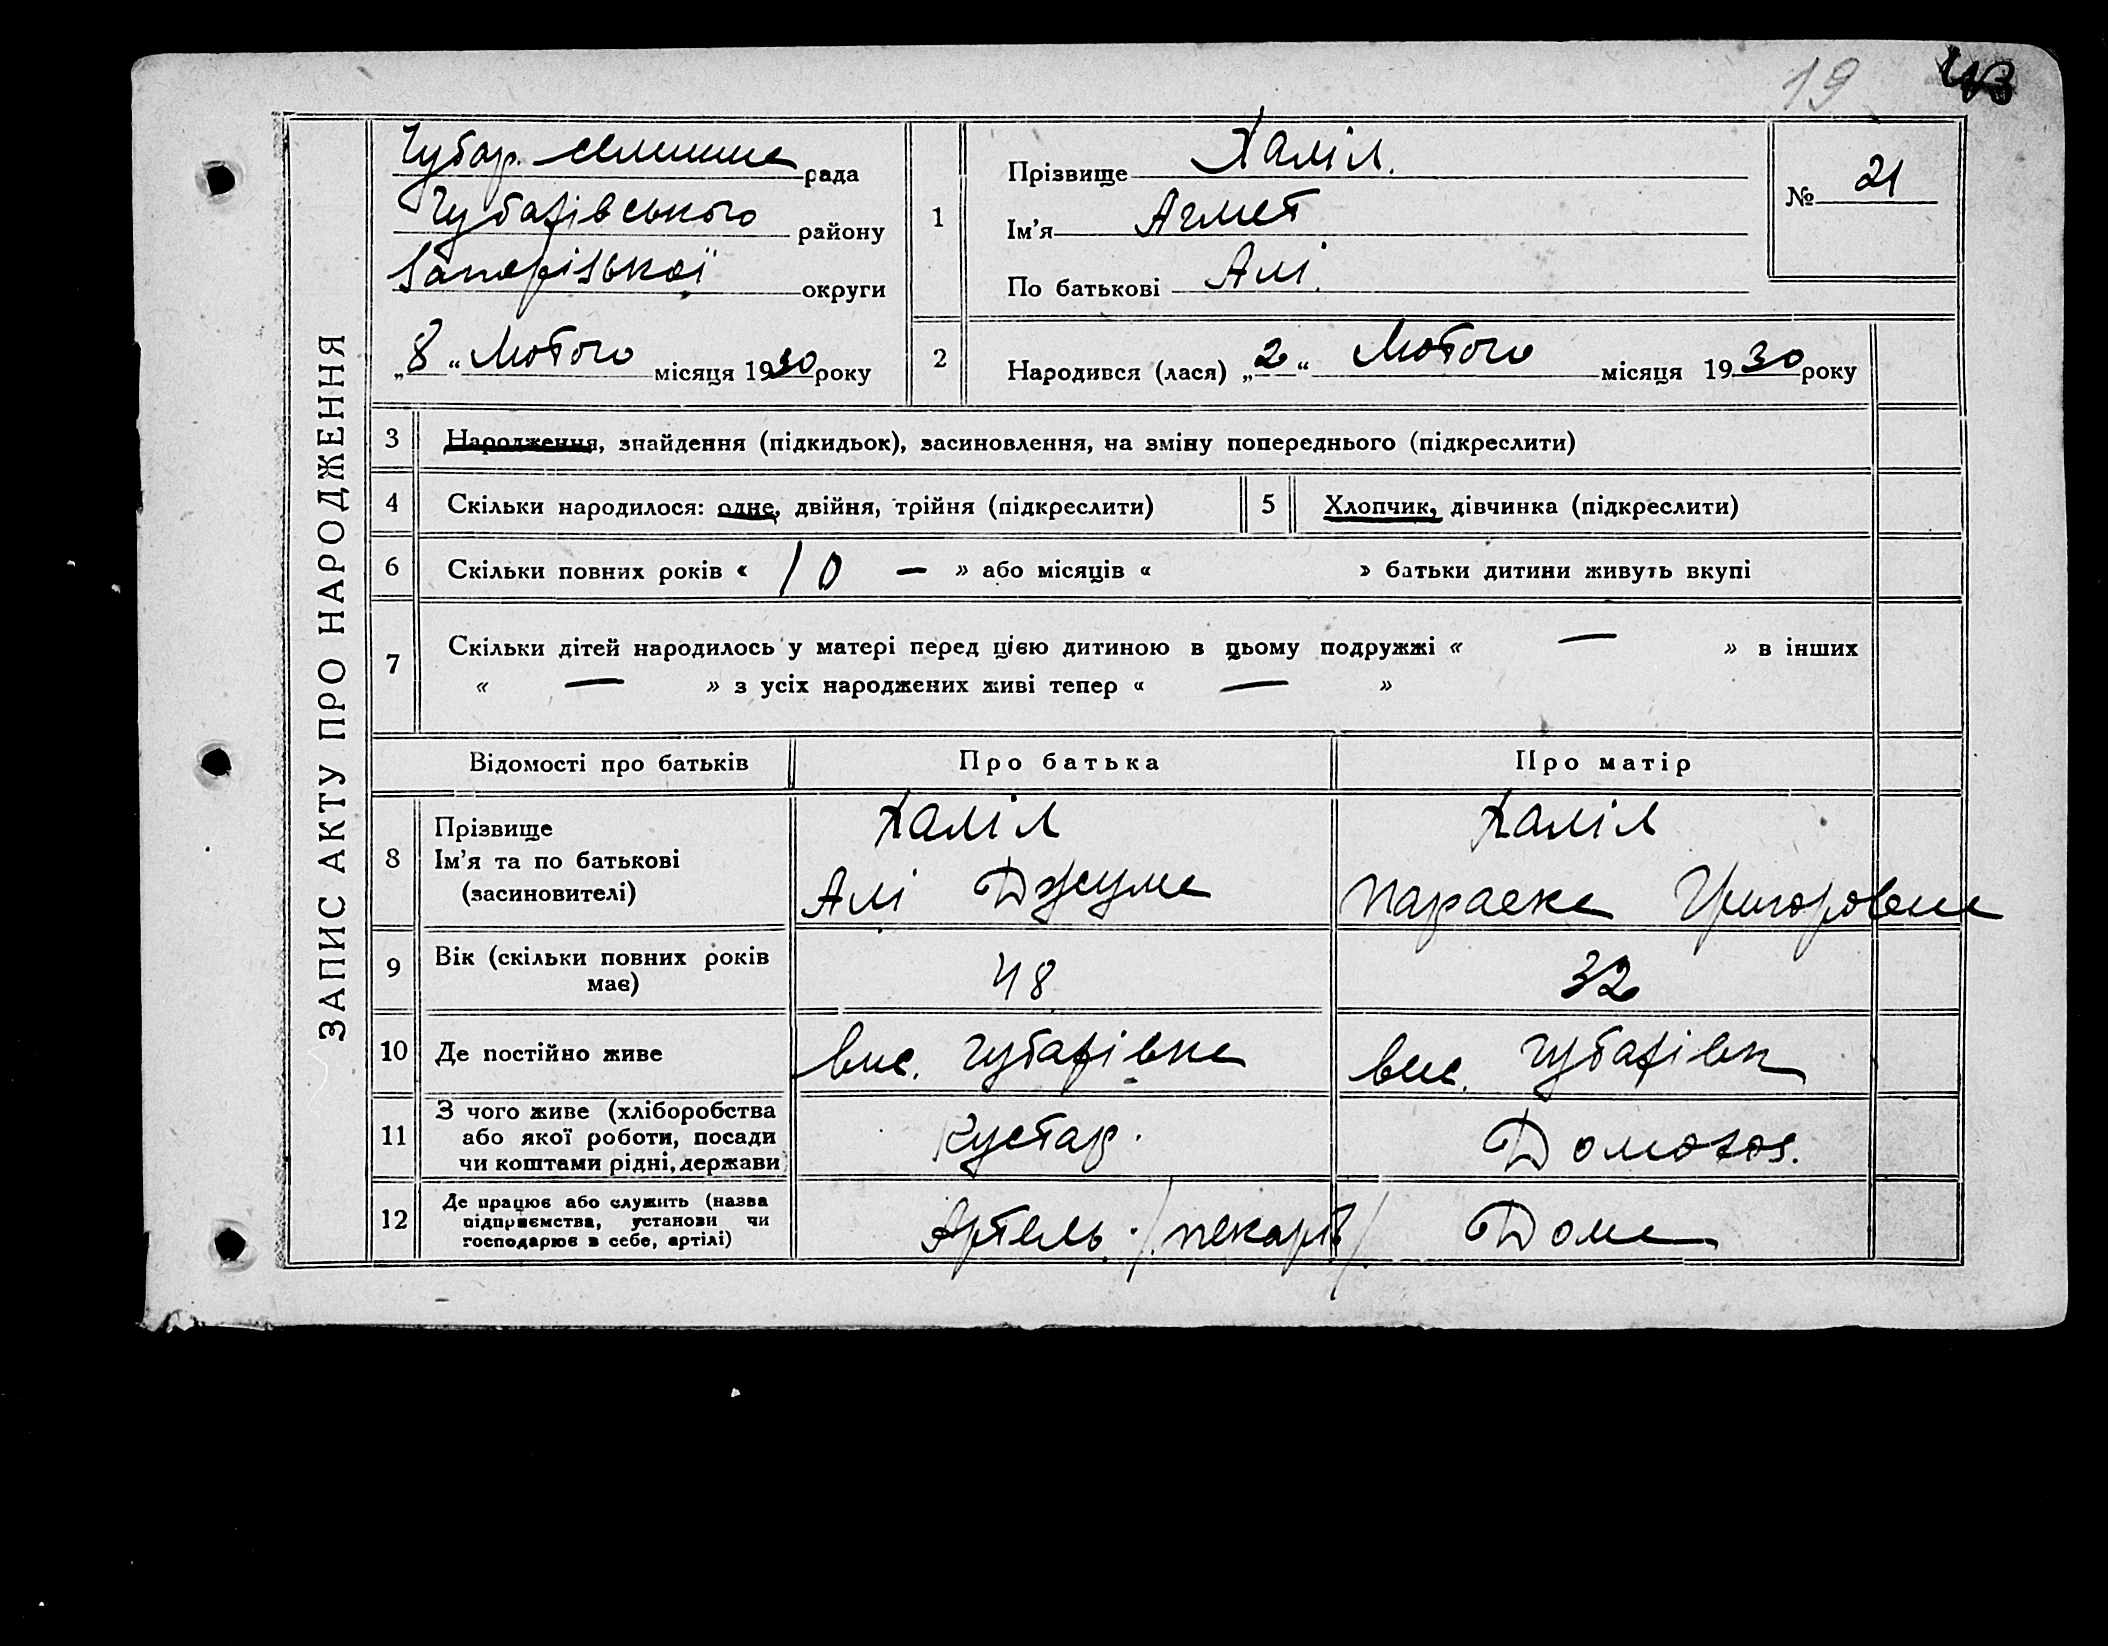 19
43
ЗАПИС АКТУ ПРО НАРОДЖЕННЯ
Чубар. селищна рада
Чубарівського району
Запорізької округи
„8“ Лютого місяця 1930 року
1
Прізвище Халіл.
Ім'я Ахмет
По батькові Алі.
№ 21
2
Народився (лася) „2“ Лютого місяця 1930 року
3 Народження, знайдення (підкидьок), засиновлення, на зміну попереднього (підкреслити)
4 Скільки народилося: одне, двійня, трійня (підкреслити) 5 Хлопчик, дівчинка (підкреслити)
6 Скільки повних років « 10 — » або місяців « » батьки дитини живуть вкупі
7 Скільки дітей народилось у матері перед цією дитиною в цьому подружжі « — » в інших
« — » з усіх народжених живі тепер « — »
Відомості про батьків Про батька Про матір
8 Прізвище Халіл Халіл
Ім'я та по батькові
(засиновителі) Алі Джума Параска Григоровна
9 Вік (скільки повних років
має) 48 32
10 Де постійно живе вис. Чубарівка вис. Чубарівк
11 З чого живе (хліборобства
або якої роботи, посади Кустар. Домогос.
чи коштами рідні, держави
12 Де працює або служить (назва
підприємства, установи чи Артель. /пекарь/ Дома
господарює в себе, артілі)